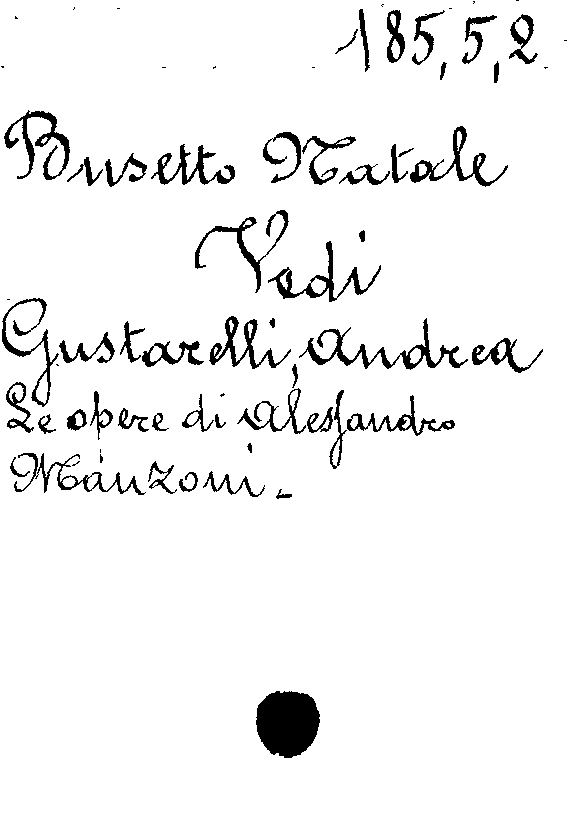 185,5,2
Busetto Natale
Vedi
Gustarelli, Andrea
Le opere di Alessandro
Manzoni.